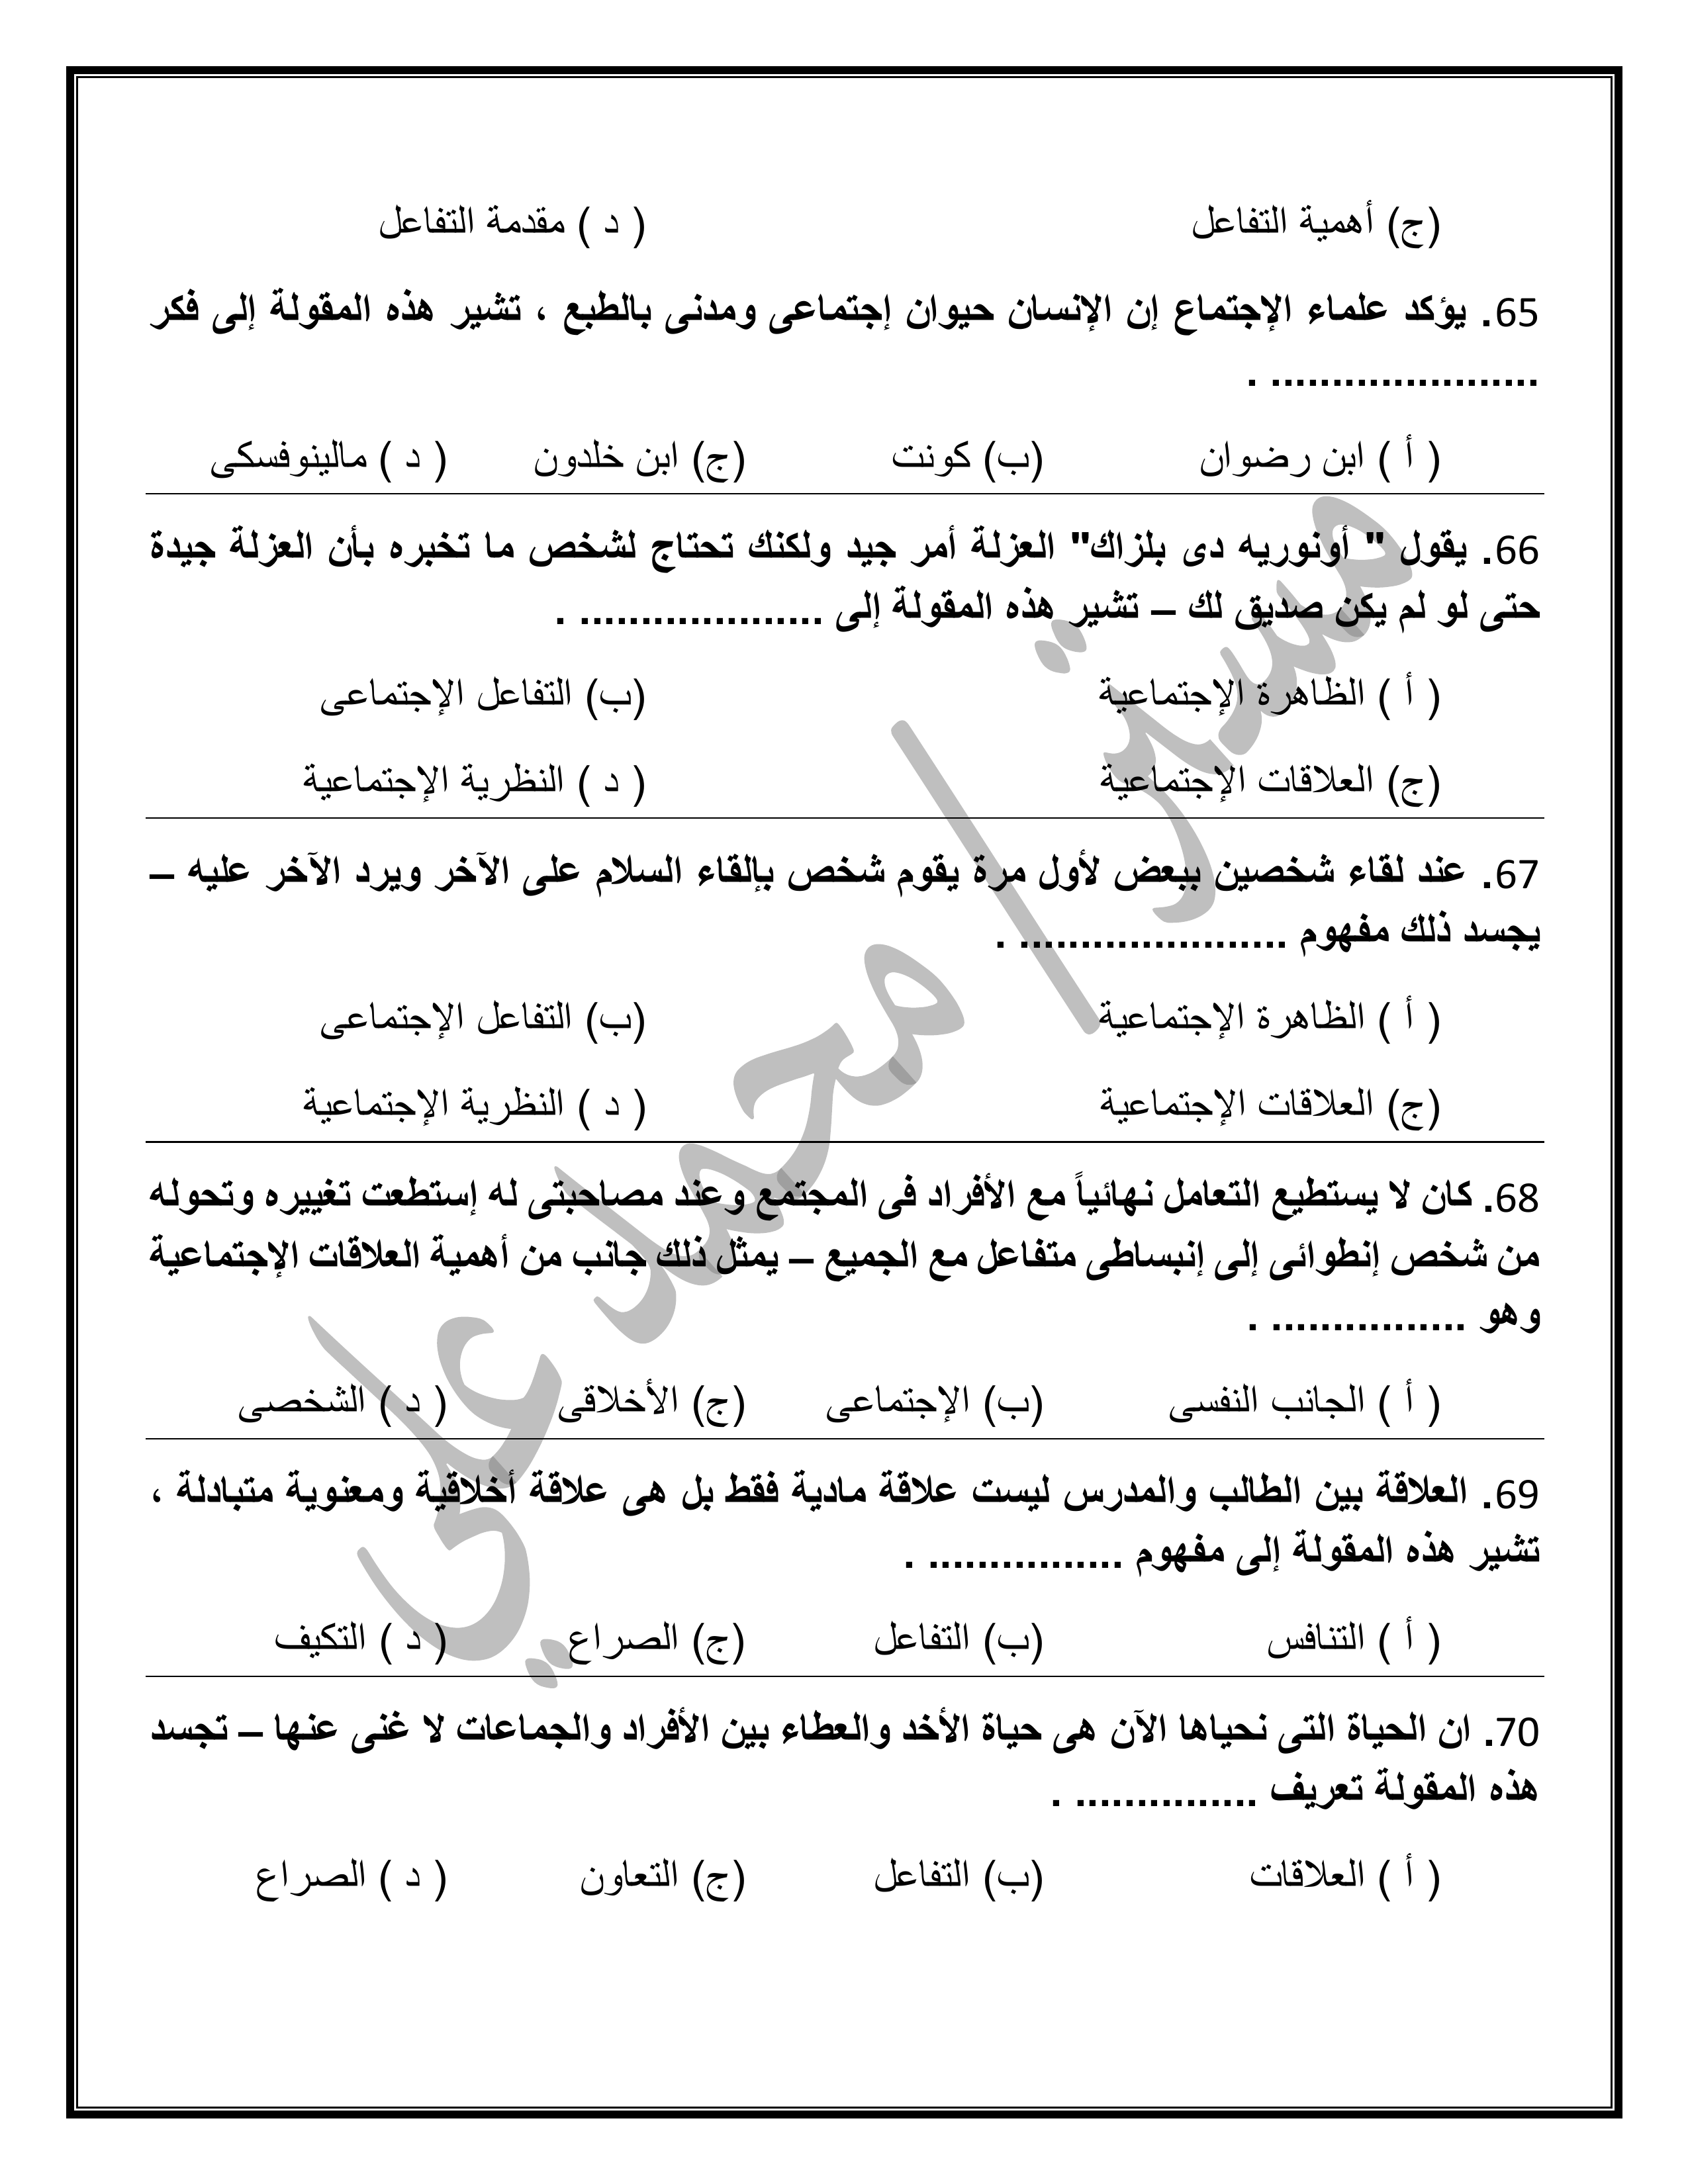 (ج) أهمية التفاعل ( د ) مقدمة التفاعل
65. يؤكد علماء الإجتماع إن الإنسان حيوان إجتماعى ومدنى بالطبع ، تشير هذه المقولة إلى فكر
...................... .
( أ ) ابن رضوان (ب) كونت (ج) ابن خلدون ( د ) مالينوفسكى
66. يقول " أونوريه دى بلزاك" العزلة أمر جيد ولكنك تحتاج لشخص ما تخبره بأن العزلة جيدة
حتى لو لم يكن صديق لك – تشير هذه المقولة إلى .................... .
( أ ) الظاهرة الإجتماعية (ب) التفاعل الإجتماعى
(ج) العلاقات الإجتماعية ( د ) النظرية الإجتماعية
67. عند لقاء شخصين ببعض لأول مرة يقوم شخص بإلقاء السلام على الآخر ويرد الآخر عليه –
يجسد ذلك مفهوم ...................... .
( أ ) الظاهرة الإجتماعية (ب) التفاعل الإجتماعى
(ج) العلاقات الإجتماعية ( د ) النظرية الإجتماعية
68. كان لا يستطيع التعامل نهائياً مع الأفراد فى المجتمع وعند مصاحبتى له إستطعت تغييره وتحوله
من شخص إنطوائى إلى إنبساطى متفاعل مع الجميع – يمثل ذلك جانب من أهمية العلاقات الإجتماعية
وهو ................ .
( أ ) الجانب النفسى (ب) الإجتماعى (ج) الأخلاقى ( د ) الشخصى
69. العلاقة بين الطالب والمدرس ليست علاقة مادية فقط بل هى علاقة أخلاقية ومعنوية متبادلة ،
تشير هذه المقولة إلى مفهوم ................ .
( أ ) التنافس (ب) التفاعل (ج) الصراع ( د ) التكيف
70. ان الحياة التى نحياها الآن هى حياة الأخد والعطاء بين الأفراد والجماعات لا غنى عنها – تجسد
هذه المقولة تعريف ............... .
( أ ) العلاقات (ب) التفاعل (ج) التعاون ( د ) الصراع
مستر/ محمد علي